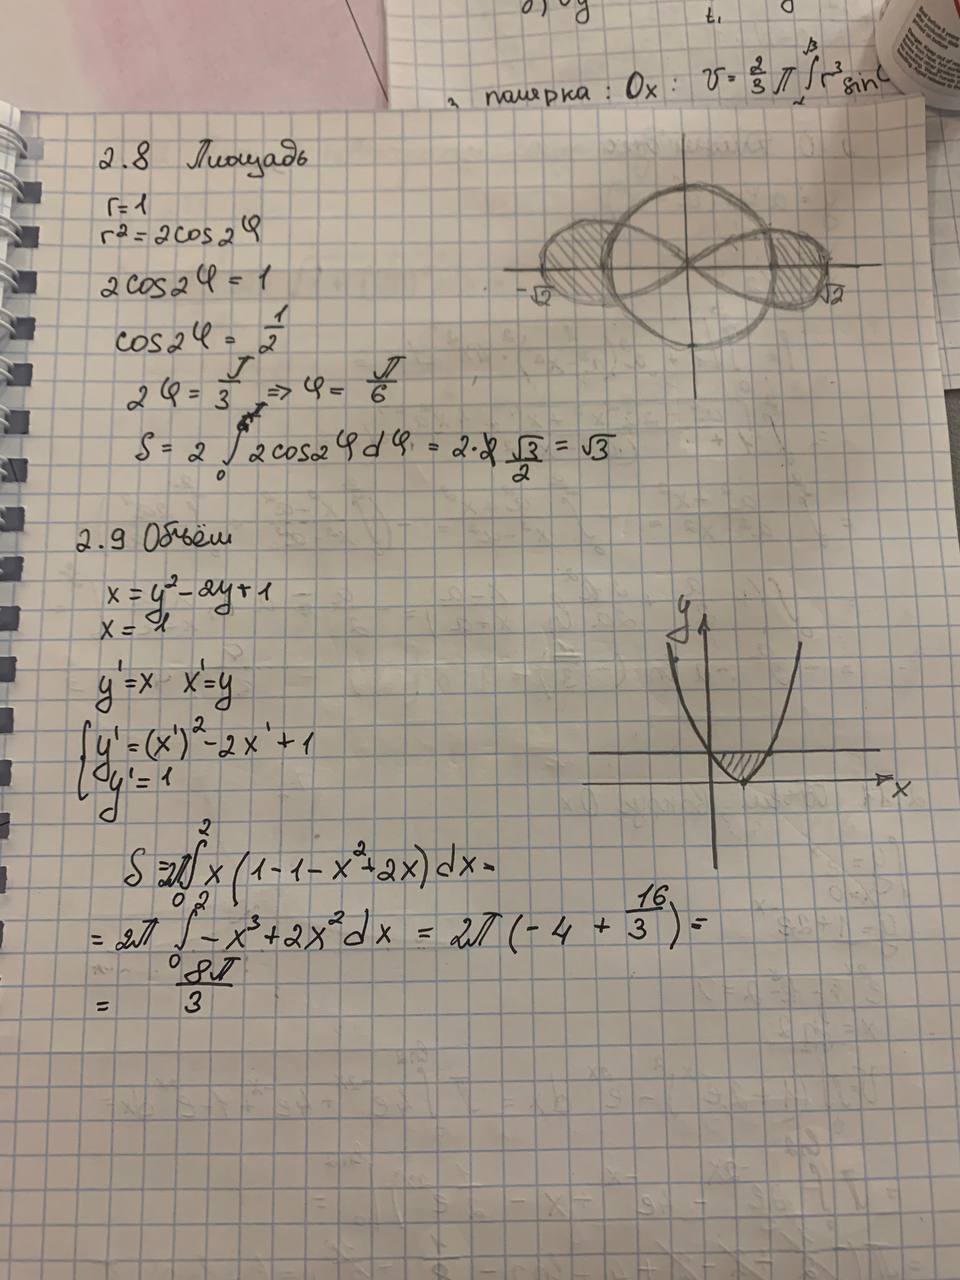 t₁
полярка : Ox : V = 2/3 π ∫ r³ sin
2.8 Площадь
r=1
r² = 2cos2φ
2cos2φ = 1
cos2φ = 1/2
2φ = π/3 => φ = π/6
S = 2 ∫₀ 2cos2φdφ = 2· √3/2 = √3
-√2
√2
2.9 Объём
x = y² - 2y + 1
x = 1
y' = x x' = y
{ y' = (x')² - 2x' + 1
y' = 1
y
x
S = 2π ∫₀² x (1-1-x²+2x) dx =
= 2π ∫₀² -x³+2x² dx = 2π (-4 + 16/3) =
= 8π/3